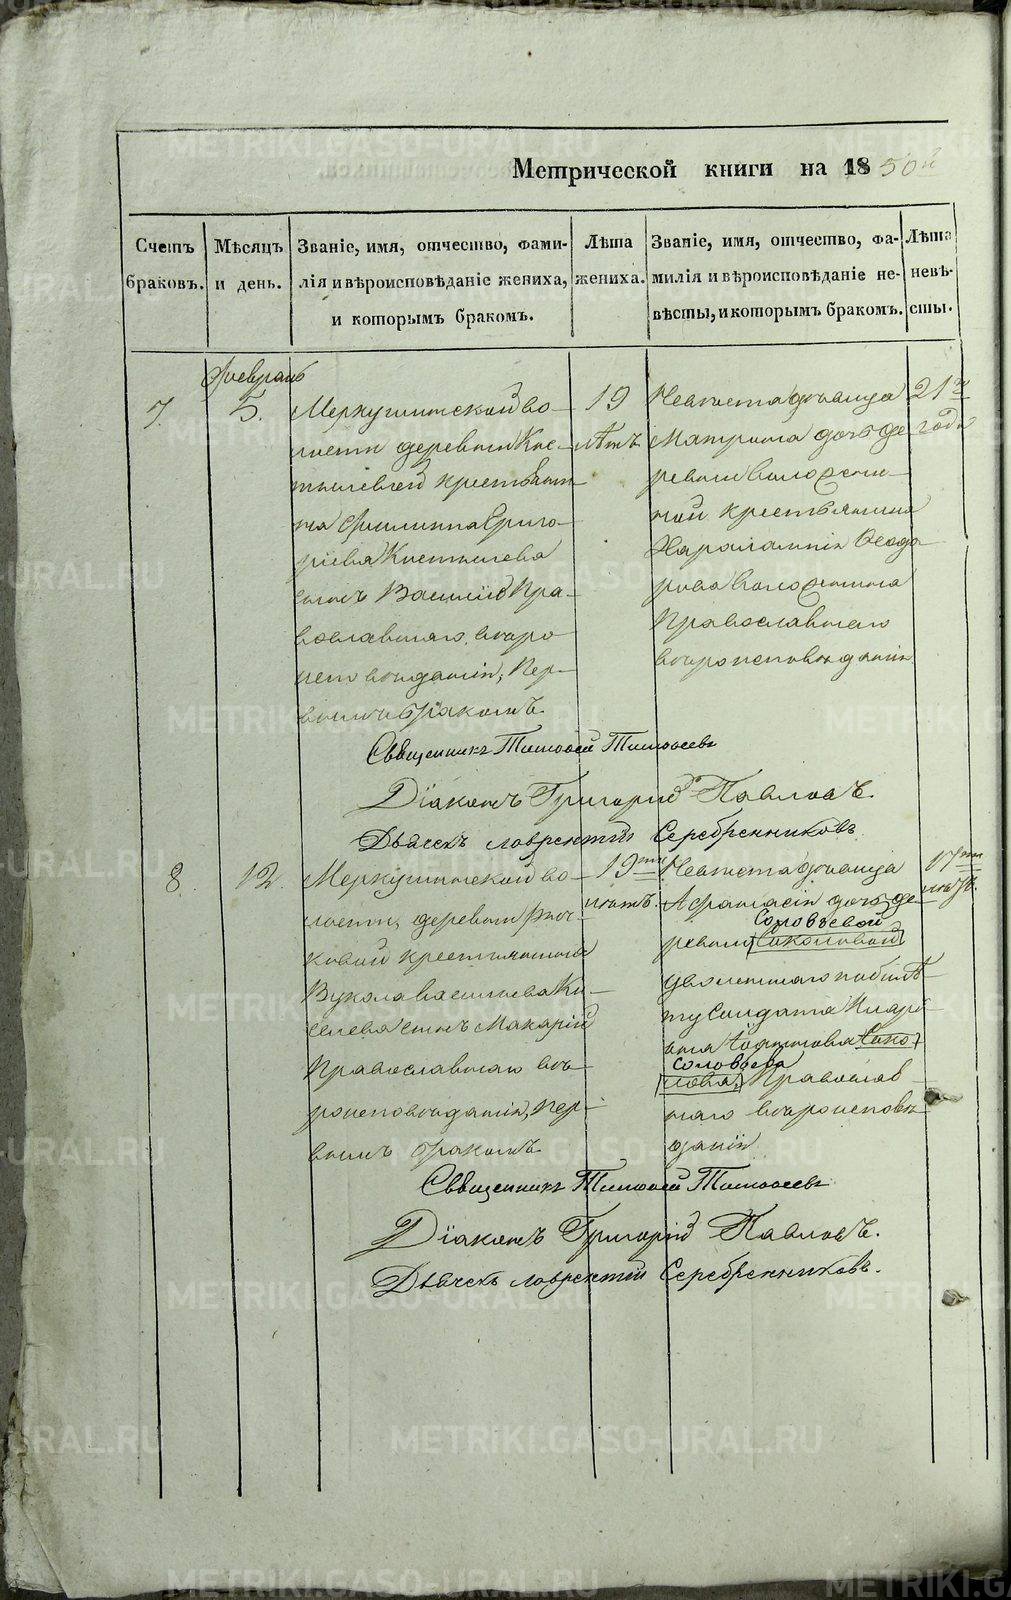 Метрической книги на 1850й
Счетъ браковъ.
Мѣсяцъ и день.
Званіе, имя, отчество, фами-
лія и вѣроисповѣданіе жениха,
и которымъ бракомъ.
Лѣта жениха.
Званіе, имя, отчество, фа-
милія и вѣроисповѣданіе не-
вѣсты, и которымъ бракомъ.
Лѣта невѣ-
сты.
Февраль
7.
5.
Меркушинской во-
лости деревни Кос-
тылевой крестьяни-
на Филиппа Григо-
ріева Костылева
сынъ Василій Пра-
вославнаго вѣро
исповѣданія, пер-
вымъ бракомъ.
19
лѣтъ
Невѣста дѣвица
Матрона дочь де
ревни Волохини-
ной крестьянина
Харалампія Ѳеодо
рова Волохинина
Православнаго
вѣроисповѣданія
21го
года
Священникъ Тимоѳей Тимоѳеевъ
Діаконъ Григорій Павловъ.
Дьячекъ Лаврентій Серебренниковъ.
8.
12.
Меркушинской во-
лости, деревни
крестьянина
Вукола Васильева Ки-
селева сынъ Макарій
Православнаго вѣ-
роисповѣданія, пер-
вымъ бракомъ.
19ти
лѣтъ.
Невѣста дѣвица
Афанасія дочь де
Соловьевой
ревни Соколовой
уволеннаго по билѣ-
ту Солдата
Соко
Соловьева
лова, Православ-
наго вѣроисповѣ
данія
17ти
лѣтъ.
Священникъ Тимоѳей Тимоѳеевъ
Діаконъ Григорій Павловъ.
Дьячекъ Лаврентій Серебренниковъ.
METRIKI.GASO-URAL.RU